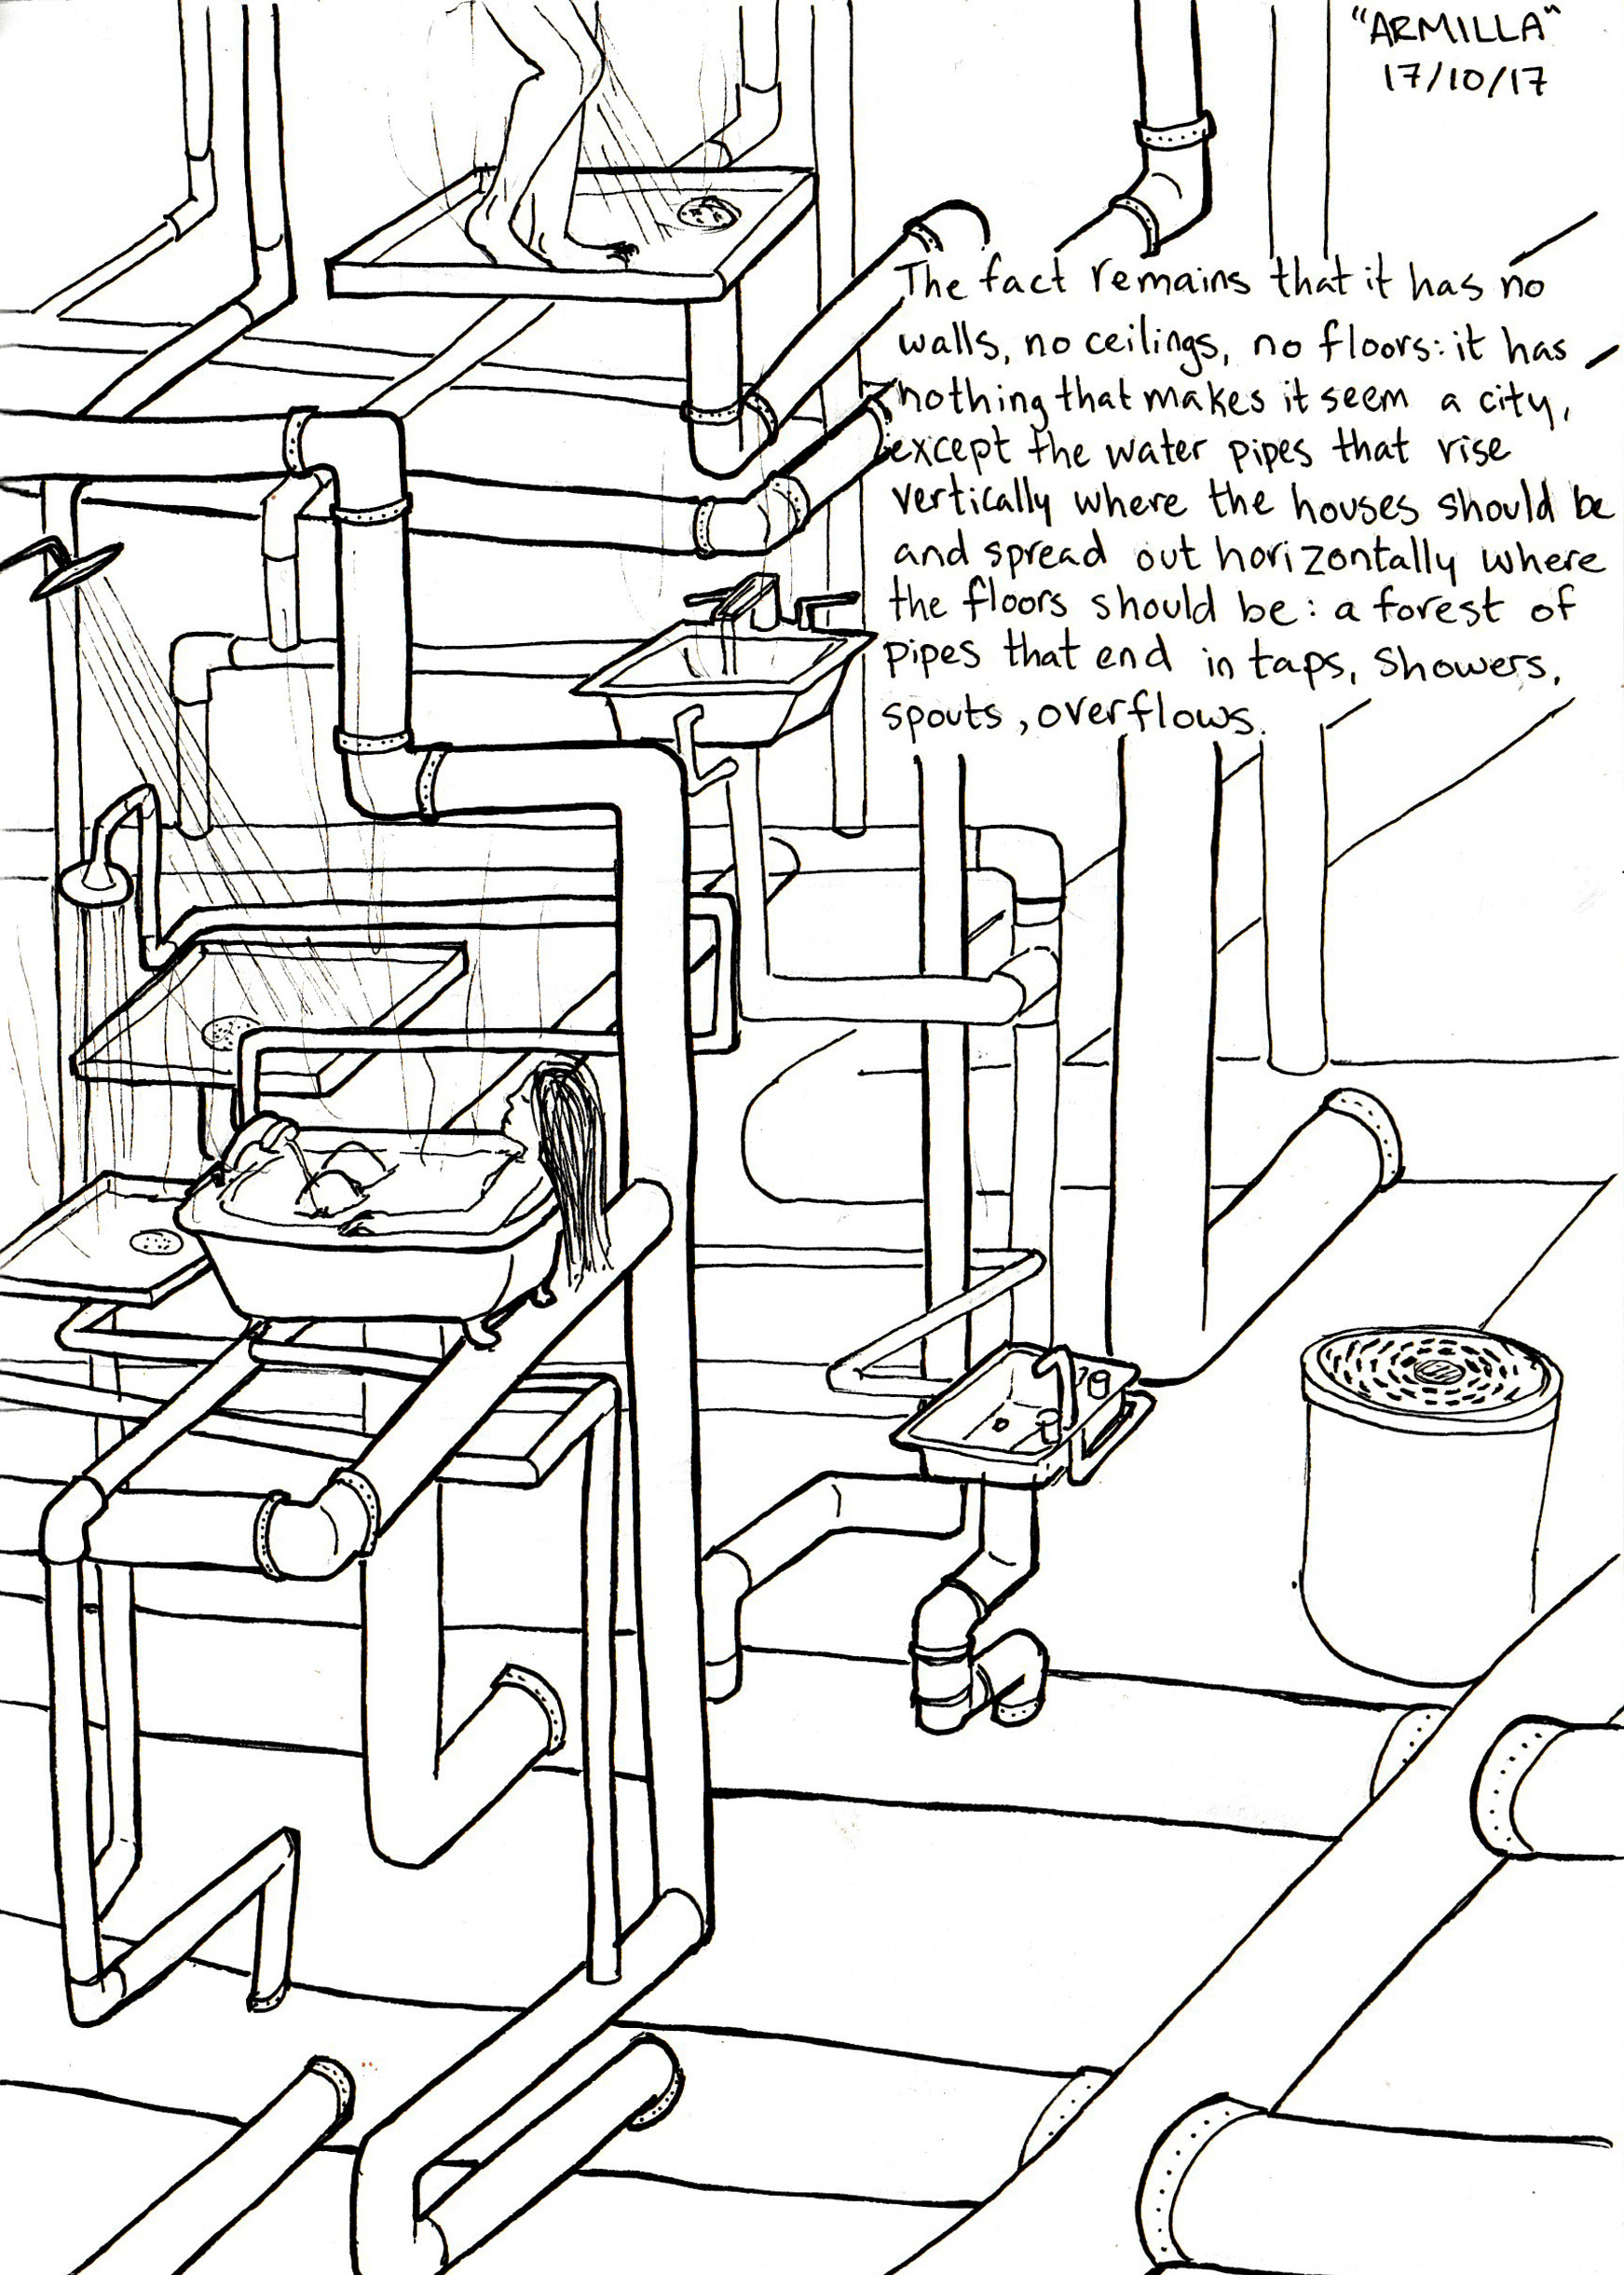 "ARMILLA"
17/10/17
The fact remains that it has no
walls, no ceilings, no floors: it has
nothing that makes it seem a city,
except the water pipes that rise
vertically where the houses should be
and spread out horizontally where
the floors should be: a forest of
pipes that end in taps, showers,
spouts, overflows.